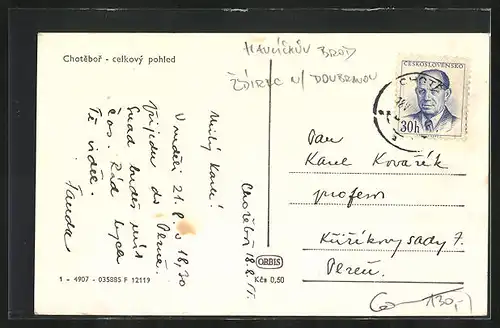 Chotěboř - celkový pohled
HAVLÍČKŮV BROD
ŽDÍREC N/ DOUBRAVOU
ČESKOSLOVENSKO
30h
CHOTĚ
Chotěboř 18.8.
Milý Karle!
V neděli 21.8. v 18,30
přijedu do Plzně.
Snad budeš mít
čas. Rád bych
Tě viděl.
Pan
Karel Kovařík
profesor
Kuříkovy sady 7.
Plzeň.
ORBIS
Kčs 0,50
1 - 4907 - 035885 F 12119
130,-